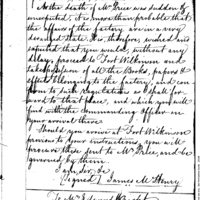 As the death of Mr Price was sudden &
unexpected, it is more than probable that
the affairs of the factory are in a very
state. It is, therefore, wished and
expected that you would, without any
delay, proceed to Fort Wilkinson and
take possession of all the Books, papers &
effects belonging to the factory, and con
form to such regulations as shall for
ward to that place, and which you will
find with the Commanding Officer on
your arrival there.
Should you arrive at Fort Wilkinson
previous to your instructions, you will
procure those sent to Mr Price, and be
governed by them.
I am sir, &c
(signed) James McHenry
To Mr Edward